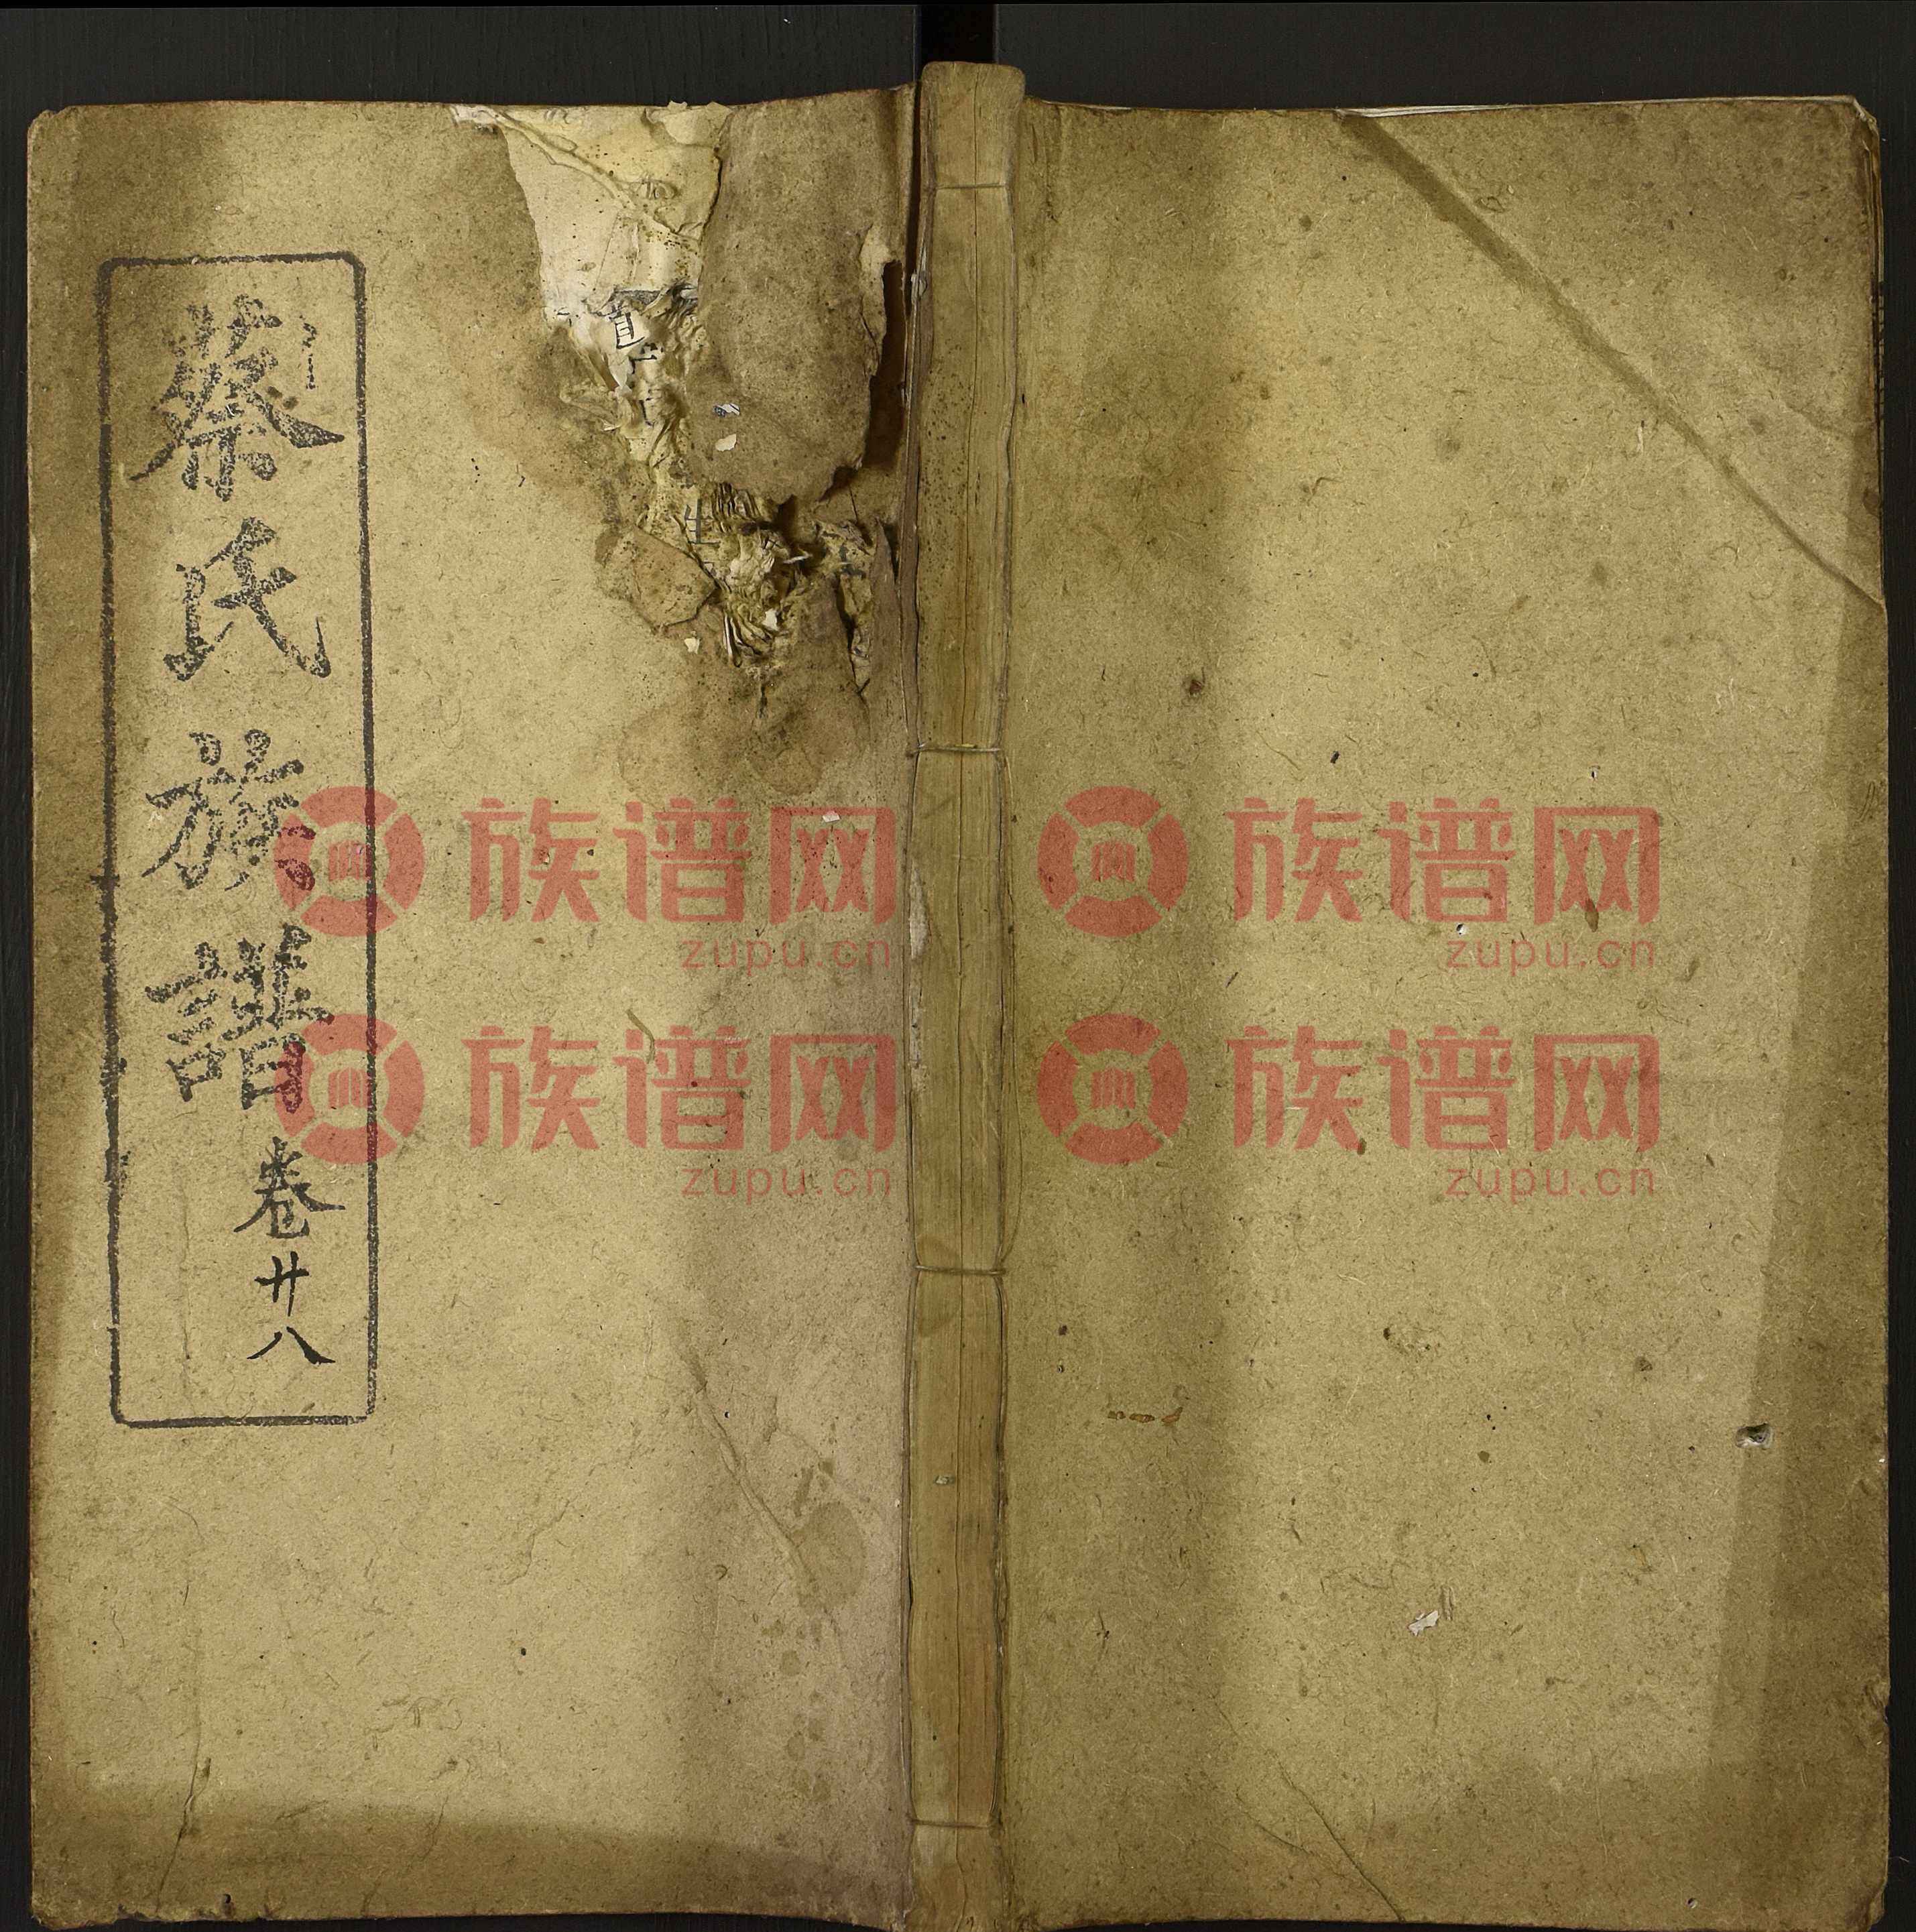 蔡氏族譜 卷廿八
生
族谱网 族谱网
zupu.cn zupu.cn
族谱网 族谱网
zupu.cn zupu.cn